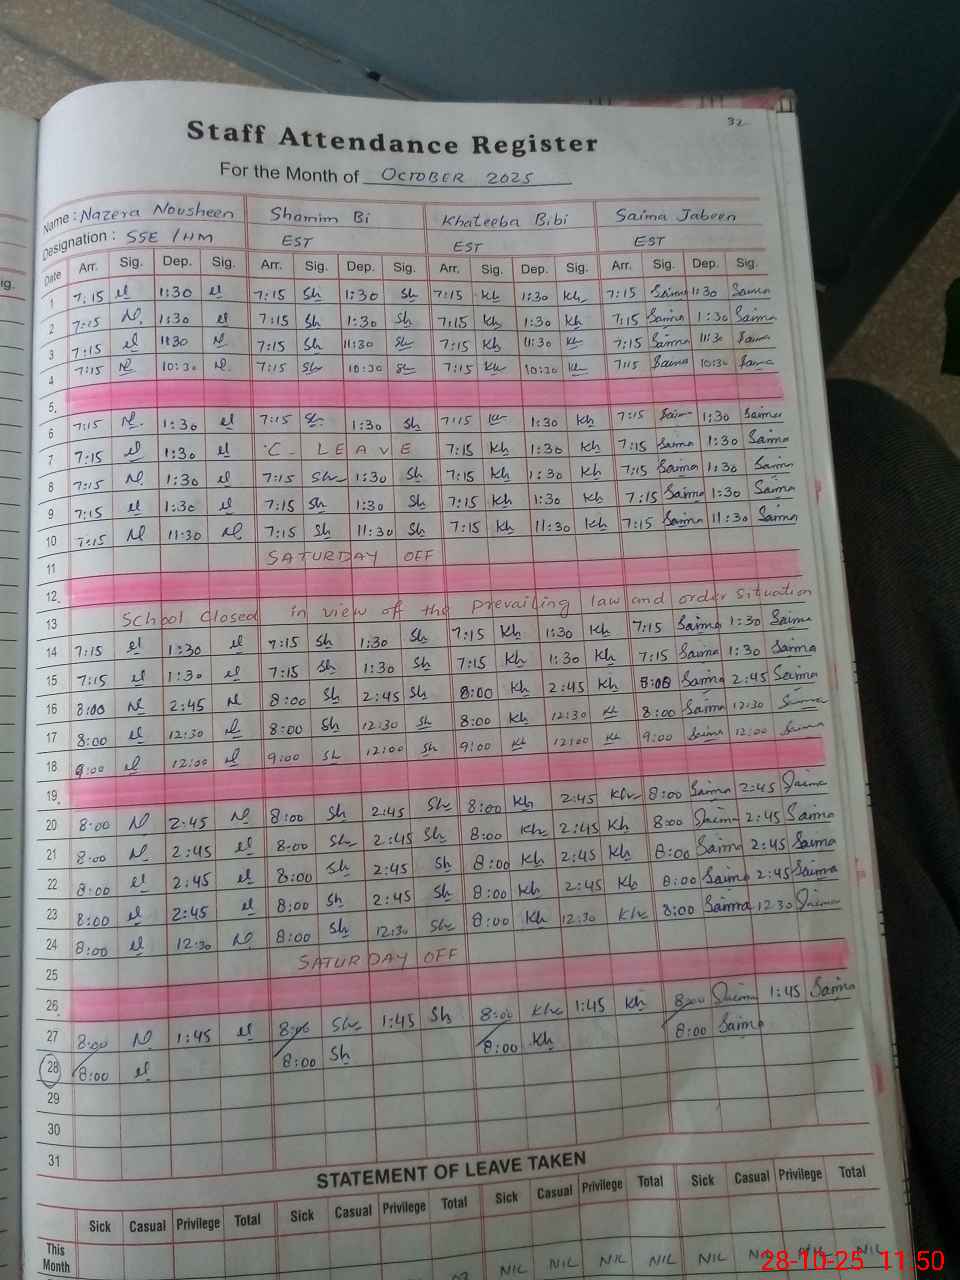 32
Staff Attendance Register
For the Month of OCTOBER 2025
Name : Nazera Nousheen Shamim Bi Khateeba Bibi Saima Jabeen
Designation : SSE / HM EST EST EST
Date Arr. Sig. Dep. Sig. Arr. Sig. Dep. Sig. Arr. Sig. Dep. Sig. Arr. Sig. Dep. Sig.
1 7:15 1:30 7:15 Sh 1:30 Sh 7:15 Kh 1:30 Kh 7:15 Saima 1:30 Saima
2 7:15 N 1:30 7:15 Sh 1:30 Sh 7:15 Kh 1:30 Kh 7:15 Saima 1:30 Saima
3 7:15 11:30 N 7:15 Sh 11:30 Sh 7:15 Kh 11:30 Kh 7:15 Saima 11:30 Saima
4 7:15 N 10:30 N 7:15 Sh 10:30 Sh 7:15 Kh 10:30 Kh 7:15 Saima 10:30 Saima
5
6 7:15 N 1:30 7:15 Sh 1:30 Sh 7:15 Kh 1:30 Kh 7:15 Saima 1:30 Saima
7 7:15 1:30 C. LEAVE 7:15 Kh 1:30 Kh 7:15 Saima 1:30 Saima
8 7:15 N 1:30 7:15 Sh 1:30 Sh 7:15 Kh 1:30 Kh 7:15 Saima 1:30 Saima
9 7:15 1:30 7:15 Sh 1:30 Sh 7:15 Kh 1:30 Kh 7:15 Saima 1:30 Saima
10 7:15 N 11:30 N 7:15 Sh 11:30 Sh 7:15 Kh 11:30 Kh 7:15 Saima 11:30 Saima
11 SATURDAY OFF
12
13 School Closed in view of the Prevailing law and order situation
14 7:15 1:30 7:15 Sh 1:30 Sh 7:15 Kh 1:30 Kh 7:15 Saima 1:30 Saima
15 7:15 1:30 7:15 Sh 1:30 Sh 7:15 Kh 1:30 Kh 7:15 Saima 1:30 Saima
16 8:00 N 2:45 N 8:00 Sh 2:45 Sh 8:00 Kh 2:45 Kh 8:00 Saima 2:45 Saima
17 8:00 12:30 N 8:00 Sh 12:30 Sh 8:00 Kh 12:30 Kh 8:00 Saima 12:30 Saima
18 9:00 12:00 9:00 Sh 12:00 Sh 9:00 Kh 12:00 Kh 9:00 Saima 12:00 Saima
19
20 8:00 N 2:45 N 8:00 Sh 2:45 Sh 8:00 Kh 2:45 Kh 8:00 Saima 2:45 Saima
21 8:00 N 2:45 8:00 Sh 2:45 Sh 8:00 Kh 2:45 Kh 8:00 Saima 2:45 Saima
22 8:00 2:45 8:00 Sh 2:45 Sh 8:00 Kh 2:45 Kh 8:00 Saima 2:45 Saima
23 8:00 2:45 8:00 Sh 2:45 Sh 8:00 Kh 2:45 Kh 8:00 Saima 2:45 Saima
24 8:00 12:30 N 8:00 Sh 12:30 Sh 8:00 Kh 12:30 Kh 8:00 Saima 12:30 Saima
25 SATURDAY OFF
26
27 8:00 N 1:45 8:00 Sh 1:45 Sh 8:00 Kh 1:45 Kh 8:00 Saima 1:45 Saima
28 8:00 8:00 Sh 8:00 Kh 8:00 Saima
29
30
31
STATEMENT OF LEAVE TAKEN
Sick Casual Privilege Total Sick Casual Privilege Total Sick Casual Privilege Total Sick Casual Privilege Total
This Month NIL NIL NIL NIL NIL NIL NIL
28-10-25 11:50